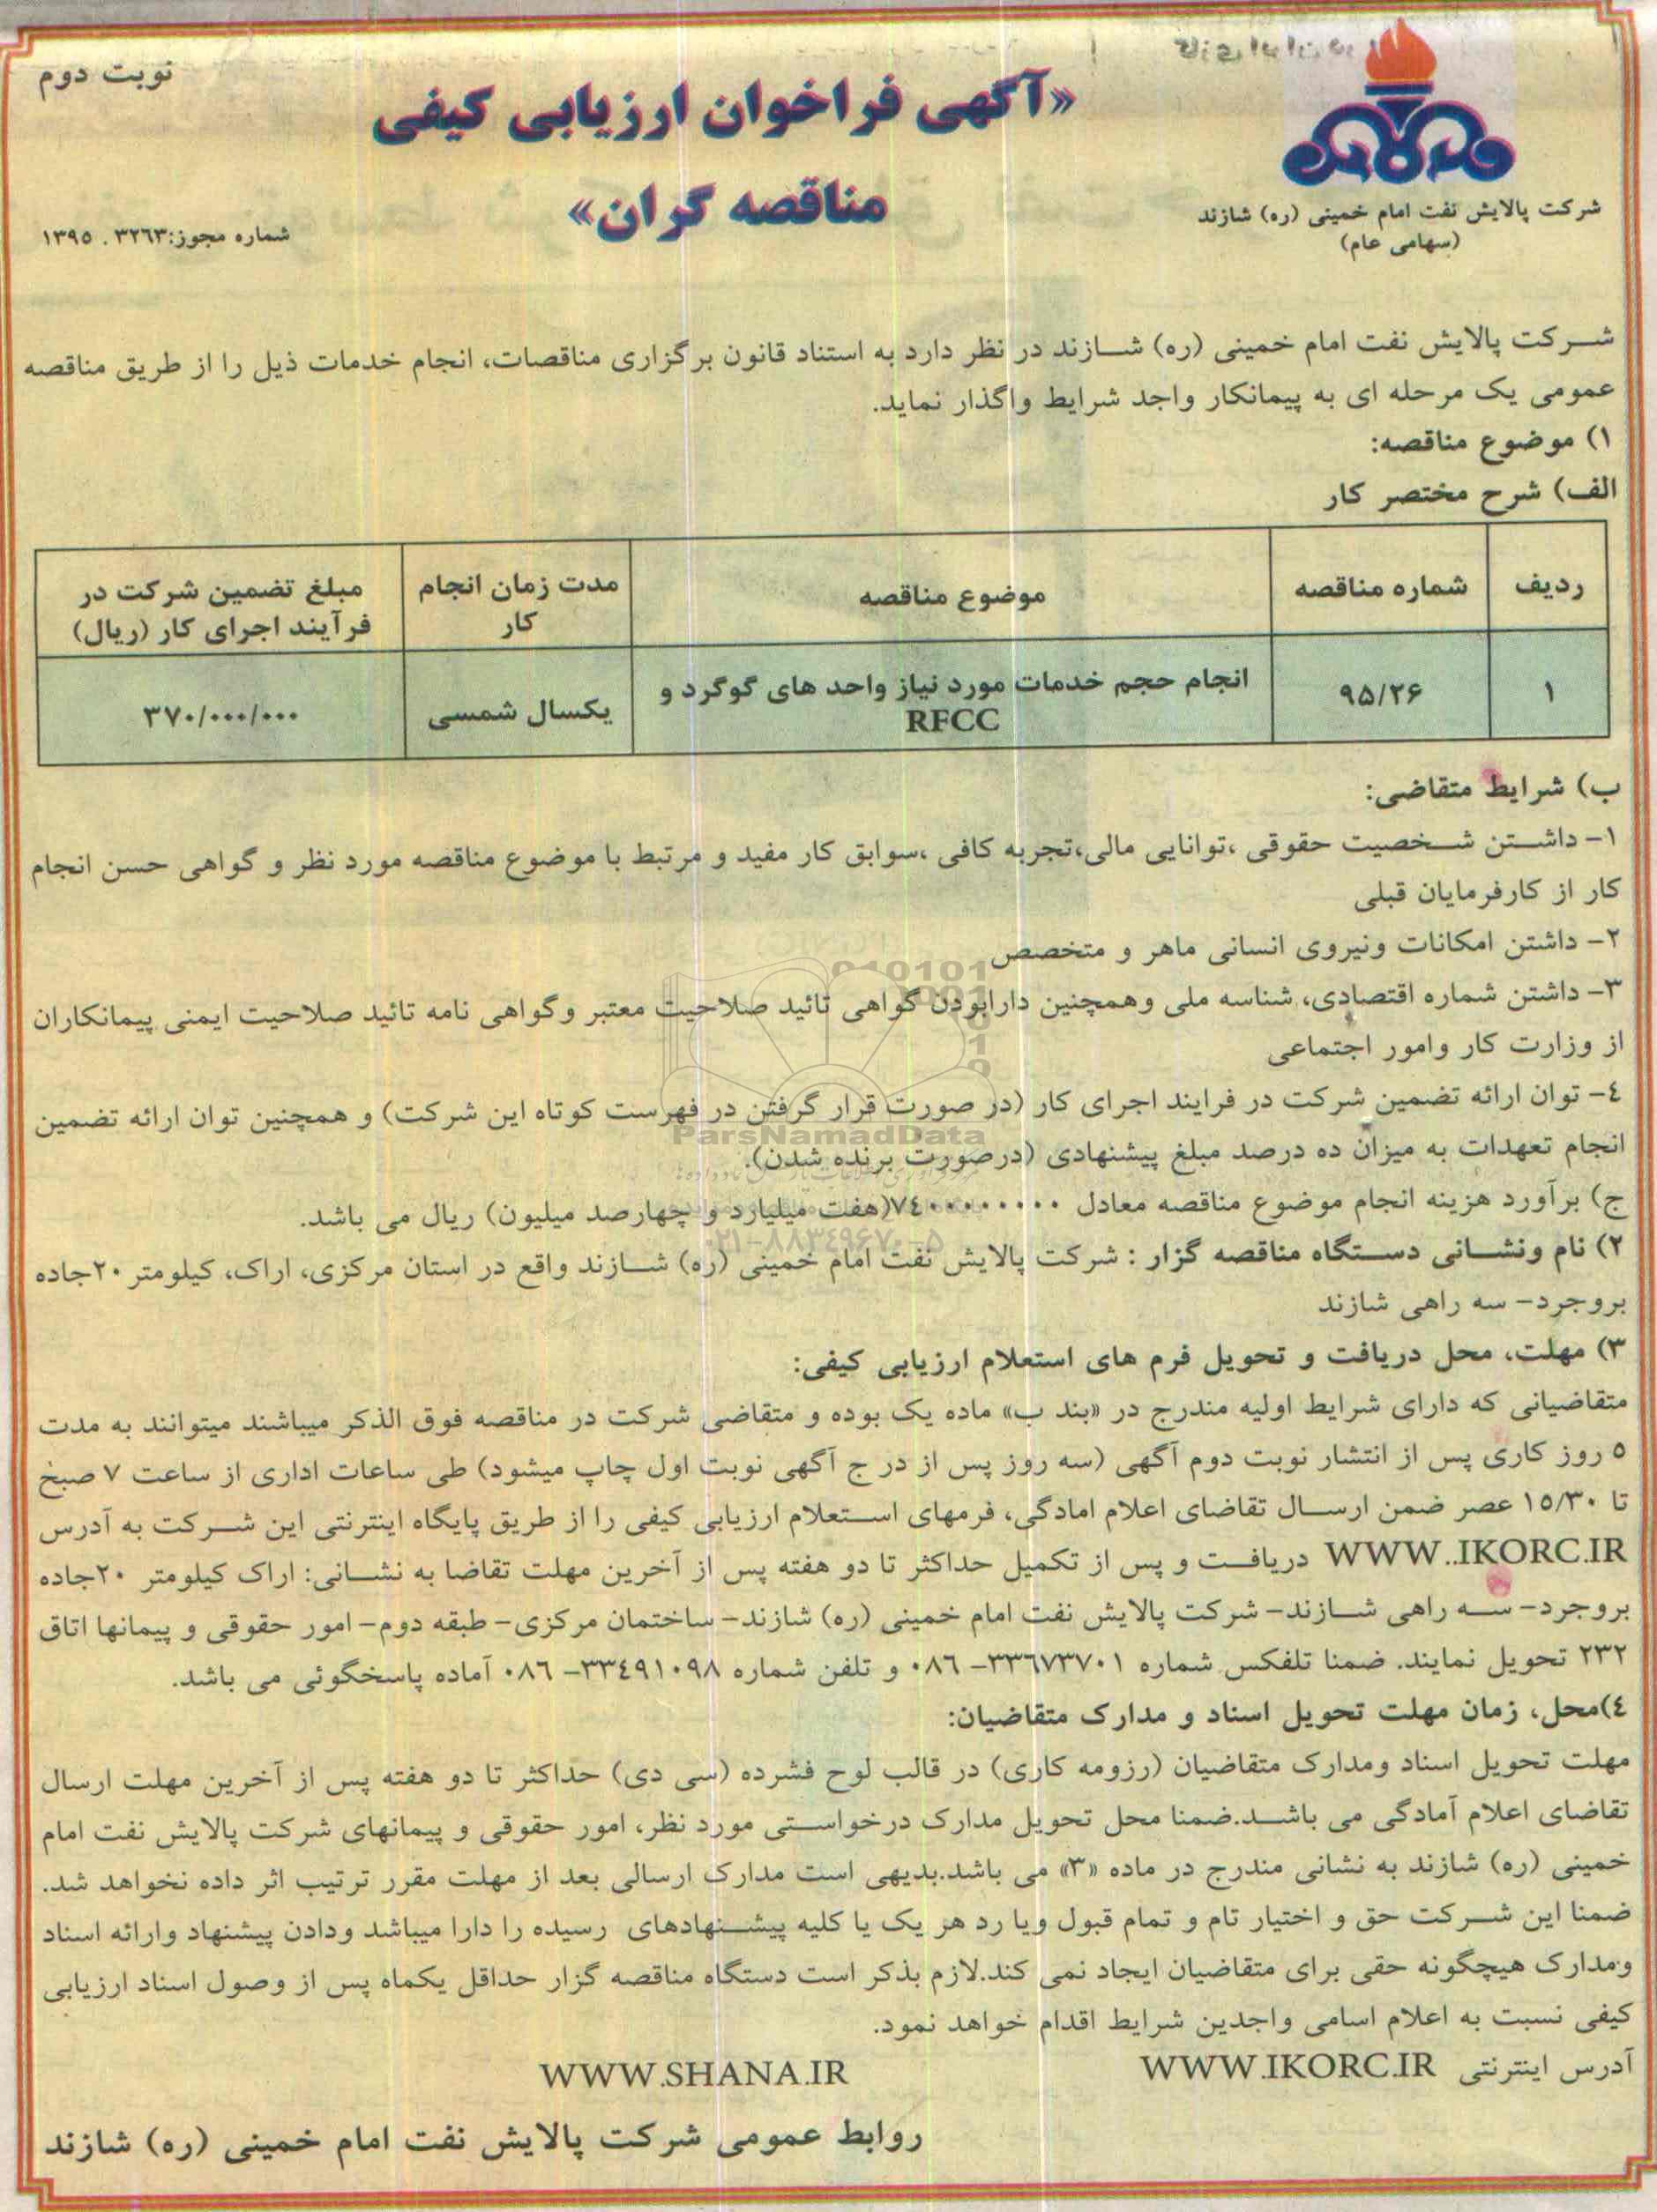 نوبت دوم
«آگهی فراخوان ارزیابی کیفی
مناقصه گران»
شرکت پالایش نفت امام خمینی (ره) شازند
(سهامی عام)
شماره مجوز:۳۲۶۳ . ۱۳۹۵
شرکت پالایش نفت امام خمینی (ره) شازند در نظر دارد به استناد قانون برگزاری مناقصات، انجام خدمات ذیل را از طریق مناقصه
عمومی یک مرحله ای به پیمانکار واجد شرایط واگذار نماید.
۱) موضوع مناقصه:
الف) شرح مختصر کار
ردیف شماره مناقصه موضوع مناقصه مدت زمان انجام کار مبلغ تضمین شرکت در فرآیند اجرای کار (ریال)
۱ ۹۵/۲۶ انجام حجم خدمات مورد نیاز واحد های گوگرد و RFCC یکسال شمسی ۳۷۰/۰۰۰/۰۰۰
ب) شرایط متقاضی:
۱- داشتن شخصیت حقوقی ،توانایی مالی،تجربه کافی ،سوابق کار مفید و مرتبط با موضوع مناقصه مورد نظر و گواهی حسن انجام
کار از کارفرمایان قبلی
۲- داشتن امکانات ونیروی انسانی ماهر و متخصص
۳- داشتن شماره اقتصادی، شناسه ملی وهمچنین دارابودن گواهی تائید صلاحیت معتبر وگواهی نامه تائید صلاحیت ایمنی پیمانکاران
از وزارت کار وامور اجتماعی
۴- توان ارائه تضمین شرکت در فرایند اجرای کار (در صورت قرار گرفتن در فهرست کوتاه این شرکت) و همچنین توان ارائه تضمین
انجام تعهدات به میزان ده درصد مبلغ پیشنهادی (درصورت برنده شدن).
ج) برآورد هزینه انجام موضوع مناقصه معادل (هفت میلیارد و چهارصد میلیون) ریال می باشد.
۲) نام ونشانی دستگاه مناقصه گزار : شرکت پالایش نفت امام خمینی (ره) شازند واقع در استان مرکزی، اراک، کیلومتر ۲۰جاده
بروجرد- سه راهی شازند
۳) مهلت، محل دریافت و تحویل فرم های استعلام ارزیابی کیفی:
متقاضیانی که دارای شرایط اولیه مندرج در «بند ب» ماده یک بوده و متقاضی شرکت در مناقصه فوق الذکر میباشند میتوانند به مدت
۵ روز کاری پس از انتشار نوبت دوم آگهی (سه روز پس از در ج آگهی نوبت اول چاپ میشود) طی ساعات اداری از ساعت ۷ صبح
تا ۱۵/۳۰ عصر ضمن ارسال تقاضای اعلام امادگی، فرمهای استعلام ارزیابی کیفی را از طریق پایگاه اینترنتی این شرکت به آدرس
WWW..IKORC.IR دریافت و پس از تکمیل حداکثر تا دو هفته پس از آخرین مهلت تقاضا به نشانی: اراک کیلومتر ۲۰جاده
بروجرد- سه راهی شازند- شرکت پالایش نفت امام خمینی (ره) شازند- ساختمان مرکزی- طبقه دوم- امور حقوقی و پیمانها اتاق
۲۳۲ تحویل نمایند. ضمنا تلفکس شماره ۳۳۶۷۳۷۰۱- ۰۸۶ و تلفن شماره ۳۳۴۹۱۰۹۸- ۰۸۶ آماده پاسخگوئی می باشد.
۴)محل، زمان مهلت تحویل اسناد و مدارک متقاضیان:
مهلت تحویل اسناد ومدارک متقاضیان (رزومه کاری) در قالب لوح فشرده (سی دی) حداکثر تا دو هفته پس از آخرین مهلت ارسال
تقاضای اعلام آمادگی می باشد.ضمنا محل تحویل مدارک درخواستی مورد نظر، امور حقوقی و پیمانهای شرکت پالایش نفت امام
خمینی (ره) شازند به نشانی مندرج در ماده «۳» می باشد.بدیهی است مدارک ارسالی بعد از مهلت مقرر ترتیب اثر داده نخواهد شد.
ضمنا این شرکت حق و اختیار تام و تمام قبول ویا رد هر یک یا کلیه پیشنهادهای رسیده را دارا میباشد ودادن پیشنهاد وارائه اسناد
ومدارک هیچگونه حقی برای متقاضیان ایجاد نمی کند.لازم بذکر است دستگاه مناقصه گزار حداقل یکماه پس از وصول اسناد ارزیابی
کیفی نسبت به اعلام اسامی واجدین شرایط اقدام خواهد نمود.
آدرس اینترنتی WWW.IKORC.IR WWW.SHANA.IR
روابط عمومی شرکت پالایش نفت امام خمینی (ره) شازند
ParsNamadData
۰۲۱-۸۸۳۴۹۶۷۰-۵